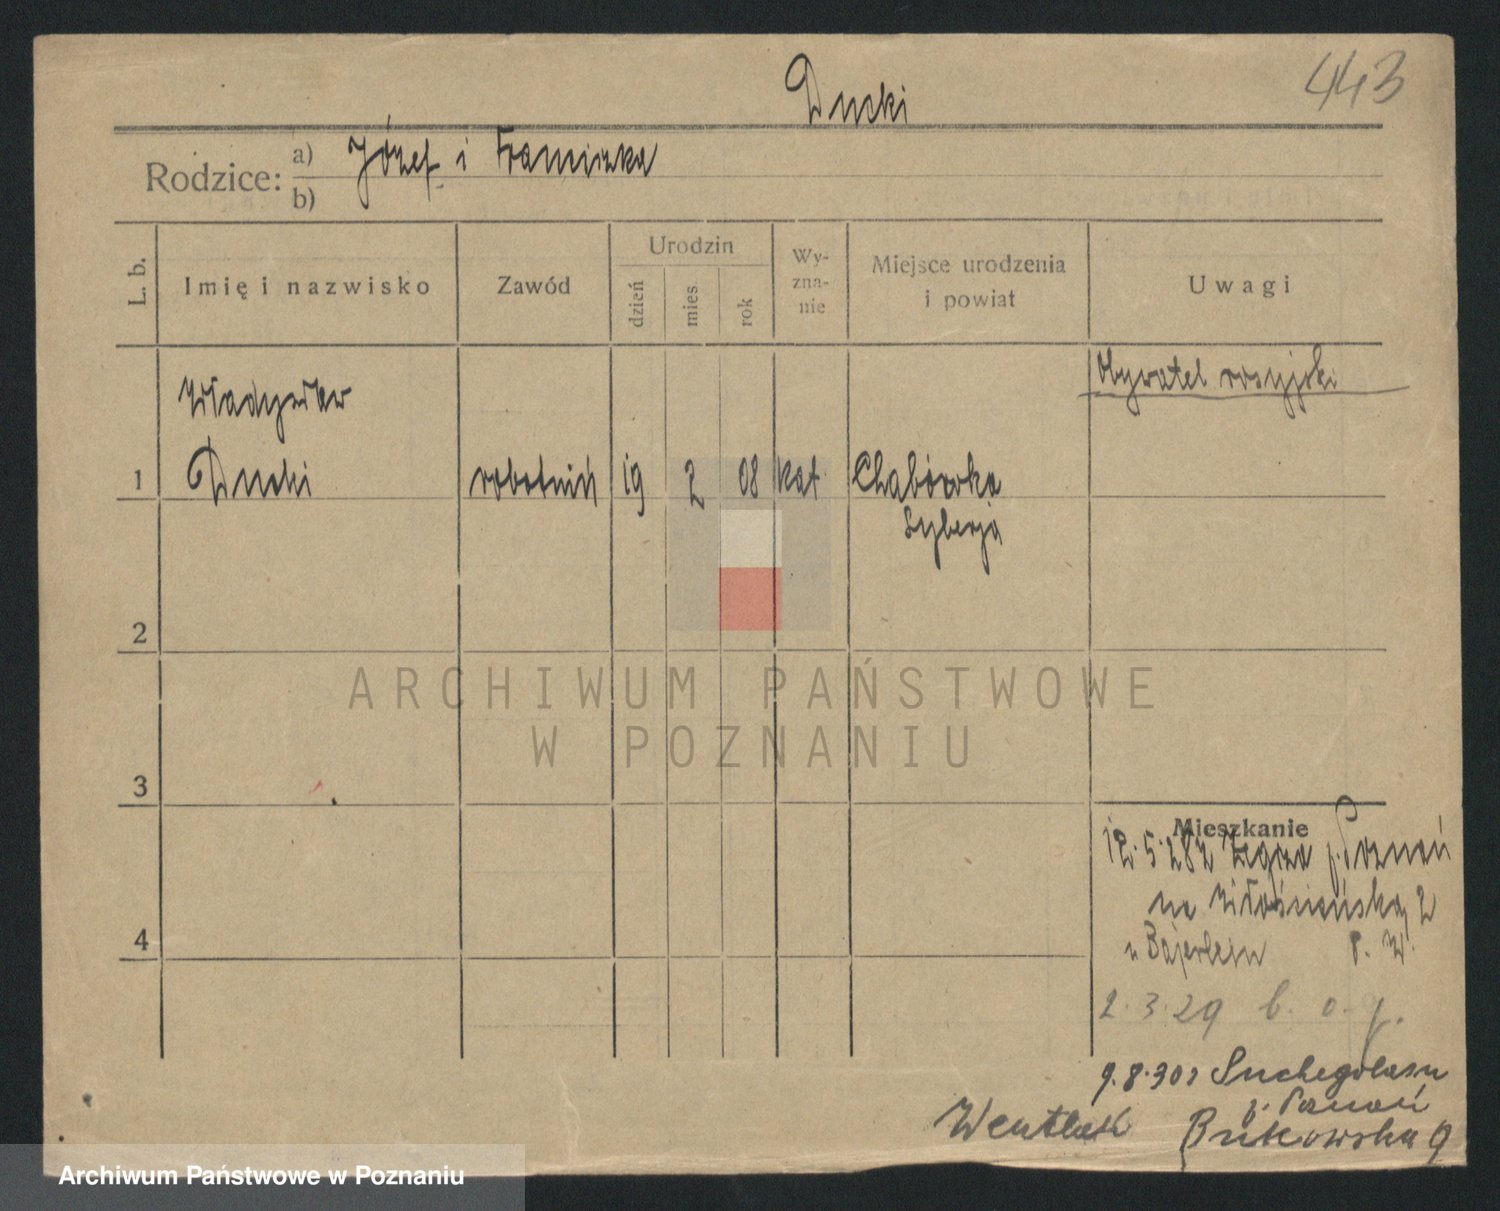 443
Ducki
Rodzice: a) Józef i Franciszka
b)
L. b. Imię i nazwisko Zawód Urodzin dzień mies. rok Wy-zna-nie Miejsce urodzenia i powiat Uwagi
Obywatel rosyjski
Władysław
1 Ducki robotnik 19 2 08 kat Chabówka
Syberja
2
ARCHIWUM PAŃSTWOWE
W POZNANIU
3
Mieszkanie
12.5.28 z p. Poznań
na Włościańską 2
u P. W.
2.3.29 b. o. j.
9.8.30 z Suchegolasu
p. Poznań
Bukowska 9
4
Archiwum Państwowe w Poznaniu